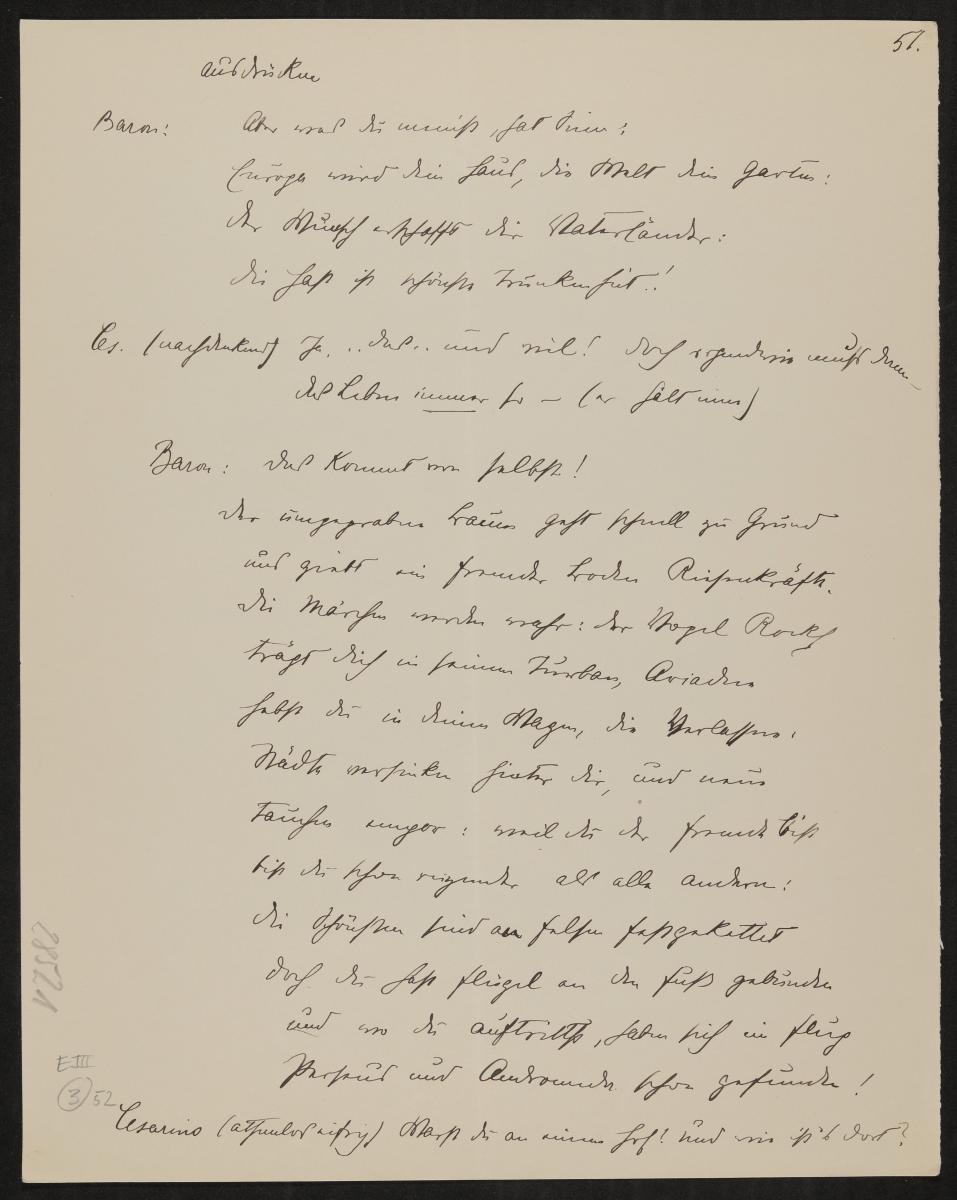 51.
ausdrücken
Baron: Aber was du meinst, hat Sinn:
Europa wird dein Haus, die Welt dein Garten:
der Wunsch erschafft dir Vaterländer:
die Hast ist schönste Trunkenheit..!
Ces. (nachdenkend) Ja... das.. und viel! doch irgendwie muß denn
das Leben immer so — (er hält inne)
Baron: das kommt von selbst!
der umgegrabne Baum geht schnell zu Grund
uns giebt ein fremder Boden Riesenkräfte.
die Märchen werden wahr: der Vogel Rockh
trägt dich in seinem Turban, Ariadne
hebst du in deinen Wagen, die Verlassne,
Städte versinken hinter dir, und neue
tauchen empor: weil du der fremde bist
bist du schon reizender als alle andern:
die Schönsten sind an Felsen festgekettet
doch du hast Flügel an den Fuß gebunden
und wo du auftrittst, haben sich im Flug
Perseus und Andromeda schon gefunden!
Cesarino (athemlos eifrig) Warst du an einem Hof! Und wie ist's dort?
28521
E III
3 52